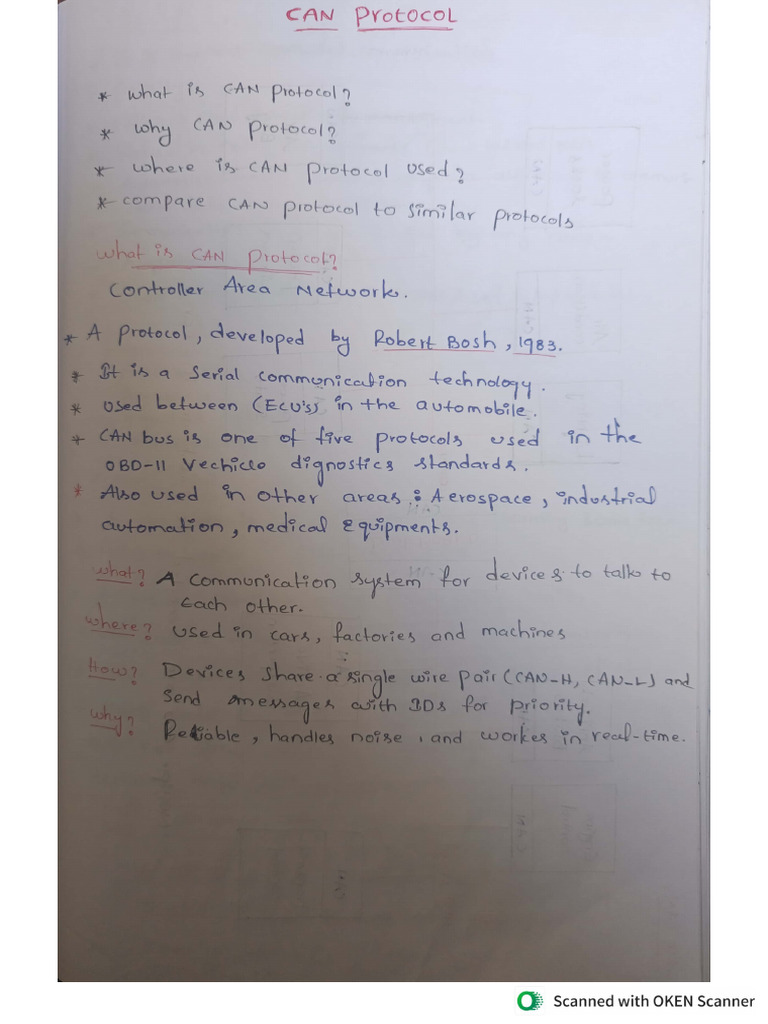 CAN Protocol
* what is CAN protocol?
* why CAN protocol?
* where is CAN protocol used?
* compare CAN protocol to similar protocols
what is CAN protocol?
Controller Area Network.
* A protocol, developed by Robert Bosh, 1983.
* It is a serial communication technology.
* used between (ECU's) in the automobile.
* CAN bus is one of five protocols used in the
OBD-II Vechicle dignostics standards.
* Also used in other areas : Aerospace, industrial
automation, medical Equipments.
what? A communication system for devices to talk to
each other.
where? used in cars, factories and machines
How? Devices share a single wire pair (CAN-H, CAN-L) and
send messages with IDs for priority.
why? Reliable, handles noise, and workes in real-time.
Scanned with OKEN Scanner